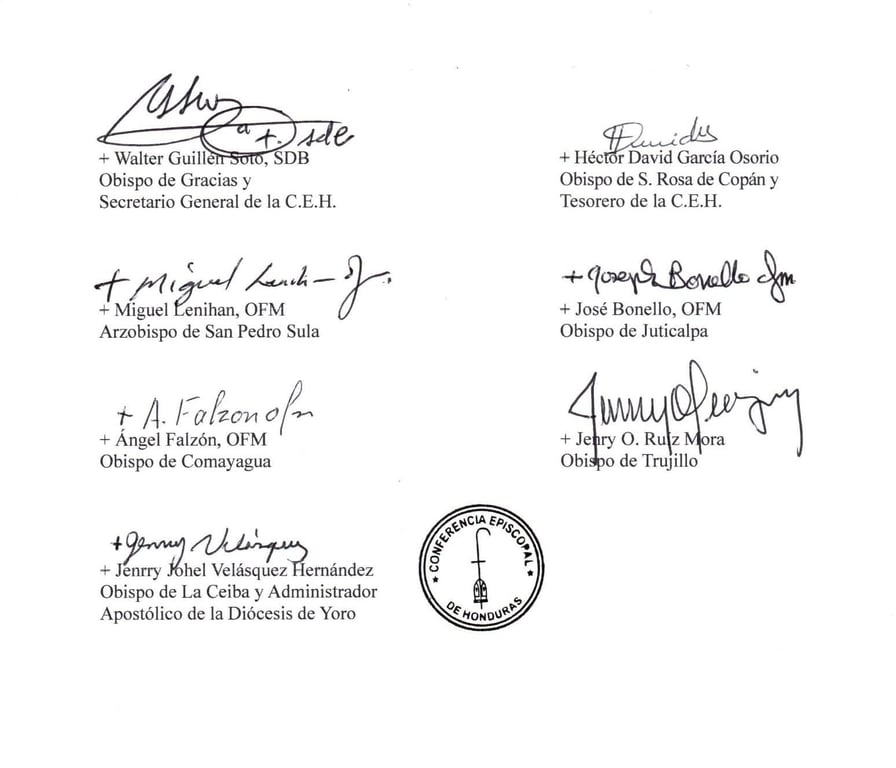 + Walter Guillén Soto, SDB
Obispo de Gracias y
Secretario General de la C.E.H.
+ Héctor David García Osorio
Obispo de S. Rosa de Copán y
Tesorero de la C.E.H.
+ Miguel Lenihan
+ Miguel Lenihan, OFM
Arzobispo de San Pedro Sula
+ Joseph Bonello ofm
+ José Bonello, OFM
Obispo de Juticalpa
+ A. Falzon ofm
+ Ángel Falzón, OFM
Obispo de Comayagua
+ Jenry O. Ruíz Mora
Obispo de Trujillo
+ Jenrry Velásquez
+ Jenrry Johel Velásquez Hernández
Obispo de La Ceiba y Administrador
Apostólico de la Diócesis de Yoro
CONFERENCIA EPISCOPAL
DE HONDURAS